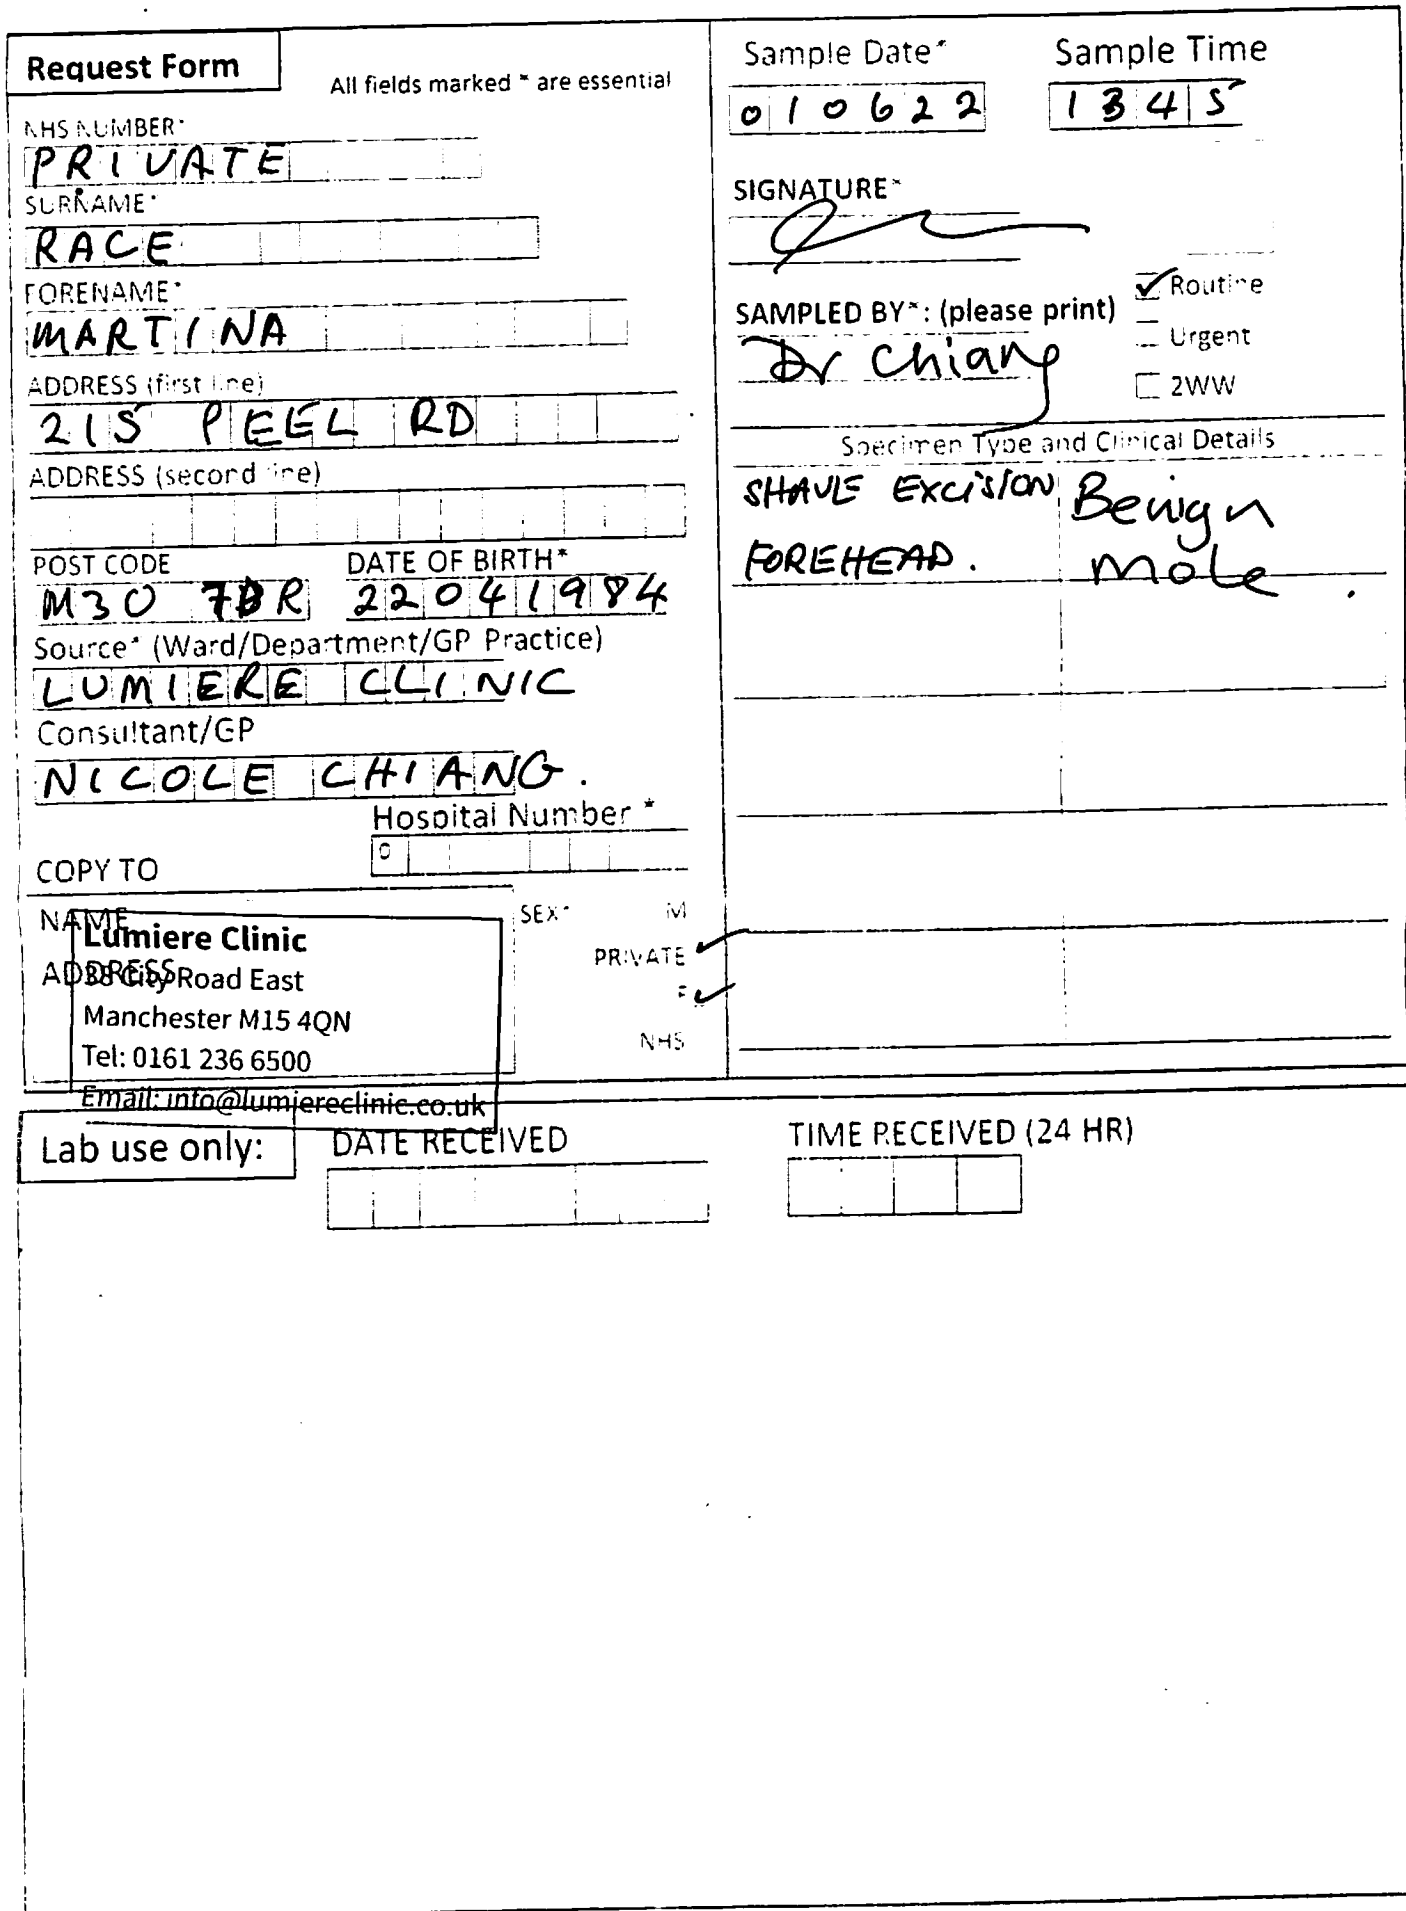 Request Form
All fields marked * are essential
NHS NUMBER*
PRIVATE
SURNAME*
RACE
FORENAME*
MARTINA
ADDRESS (first line)
215 PEEL RD
ADDRESS (second line)
POST CODE DATE OF BIRTH*
M30 7BR 22041984
Source* (Ward/Department/GP Practice)
LUMIERE CLINIC
Consultant/GP
NICOLE CHIANG.
Hospital Number *
0
COPY TO
NAME
ADDRESS
Lumiere Clinic
38 City Road East
Manchester M15 4QN
Tel: 0161 236 6500
Email: info@lumiereclinic.co.uk
SEX* M
PRIVATE ✓
F ✓
NHS
Sample Date* Sample Time
010622 1345
SIGNATURE*
SAMPLED BY*: (please print)
Dr Chiang
✓ Routine
Urgent
2WW
Specimen Type and Clinical Details
SHAVE EXCISION Benign
FOREHEAD. Mole.
Lab use only:
DATE RECEIVED
TIME RECEIVED (24 HR)